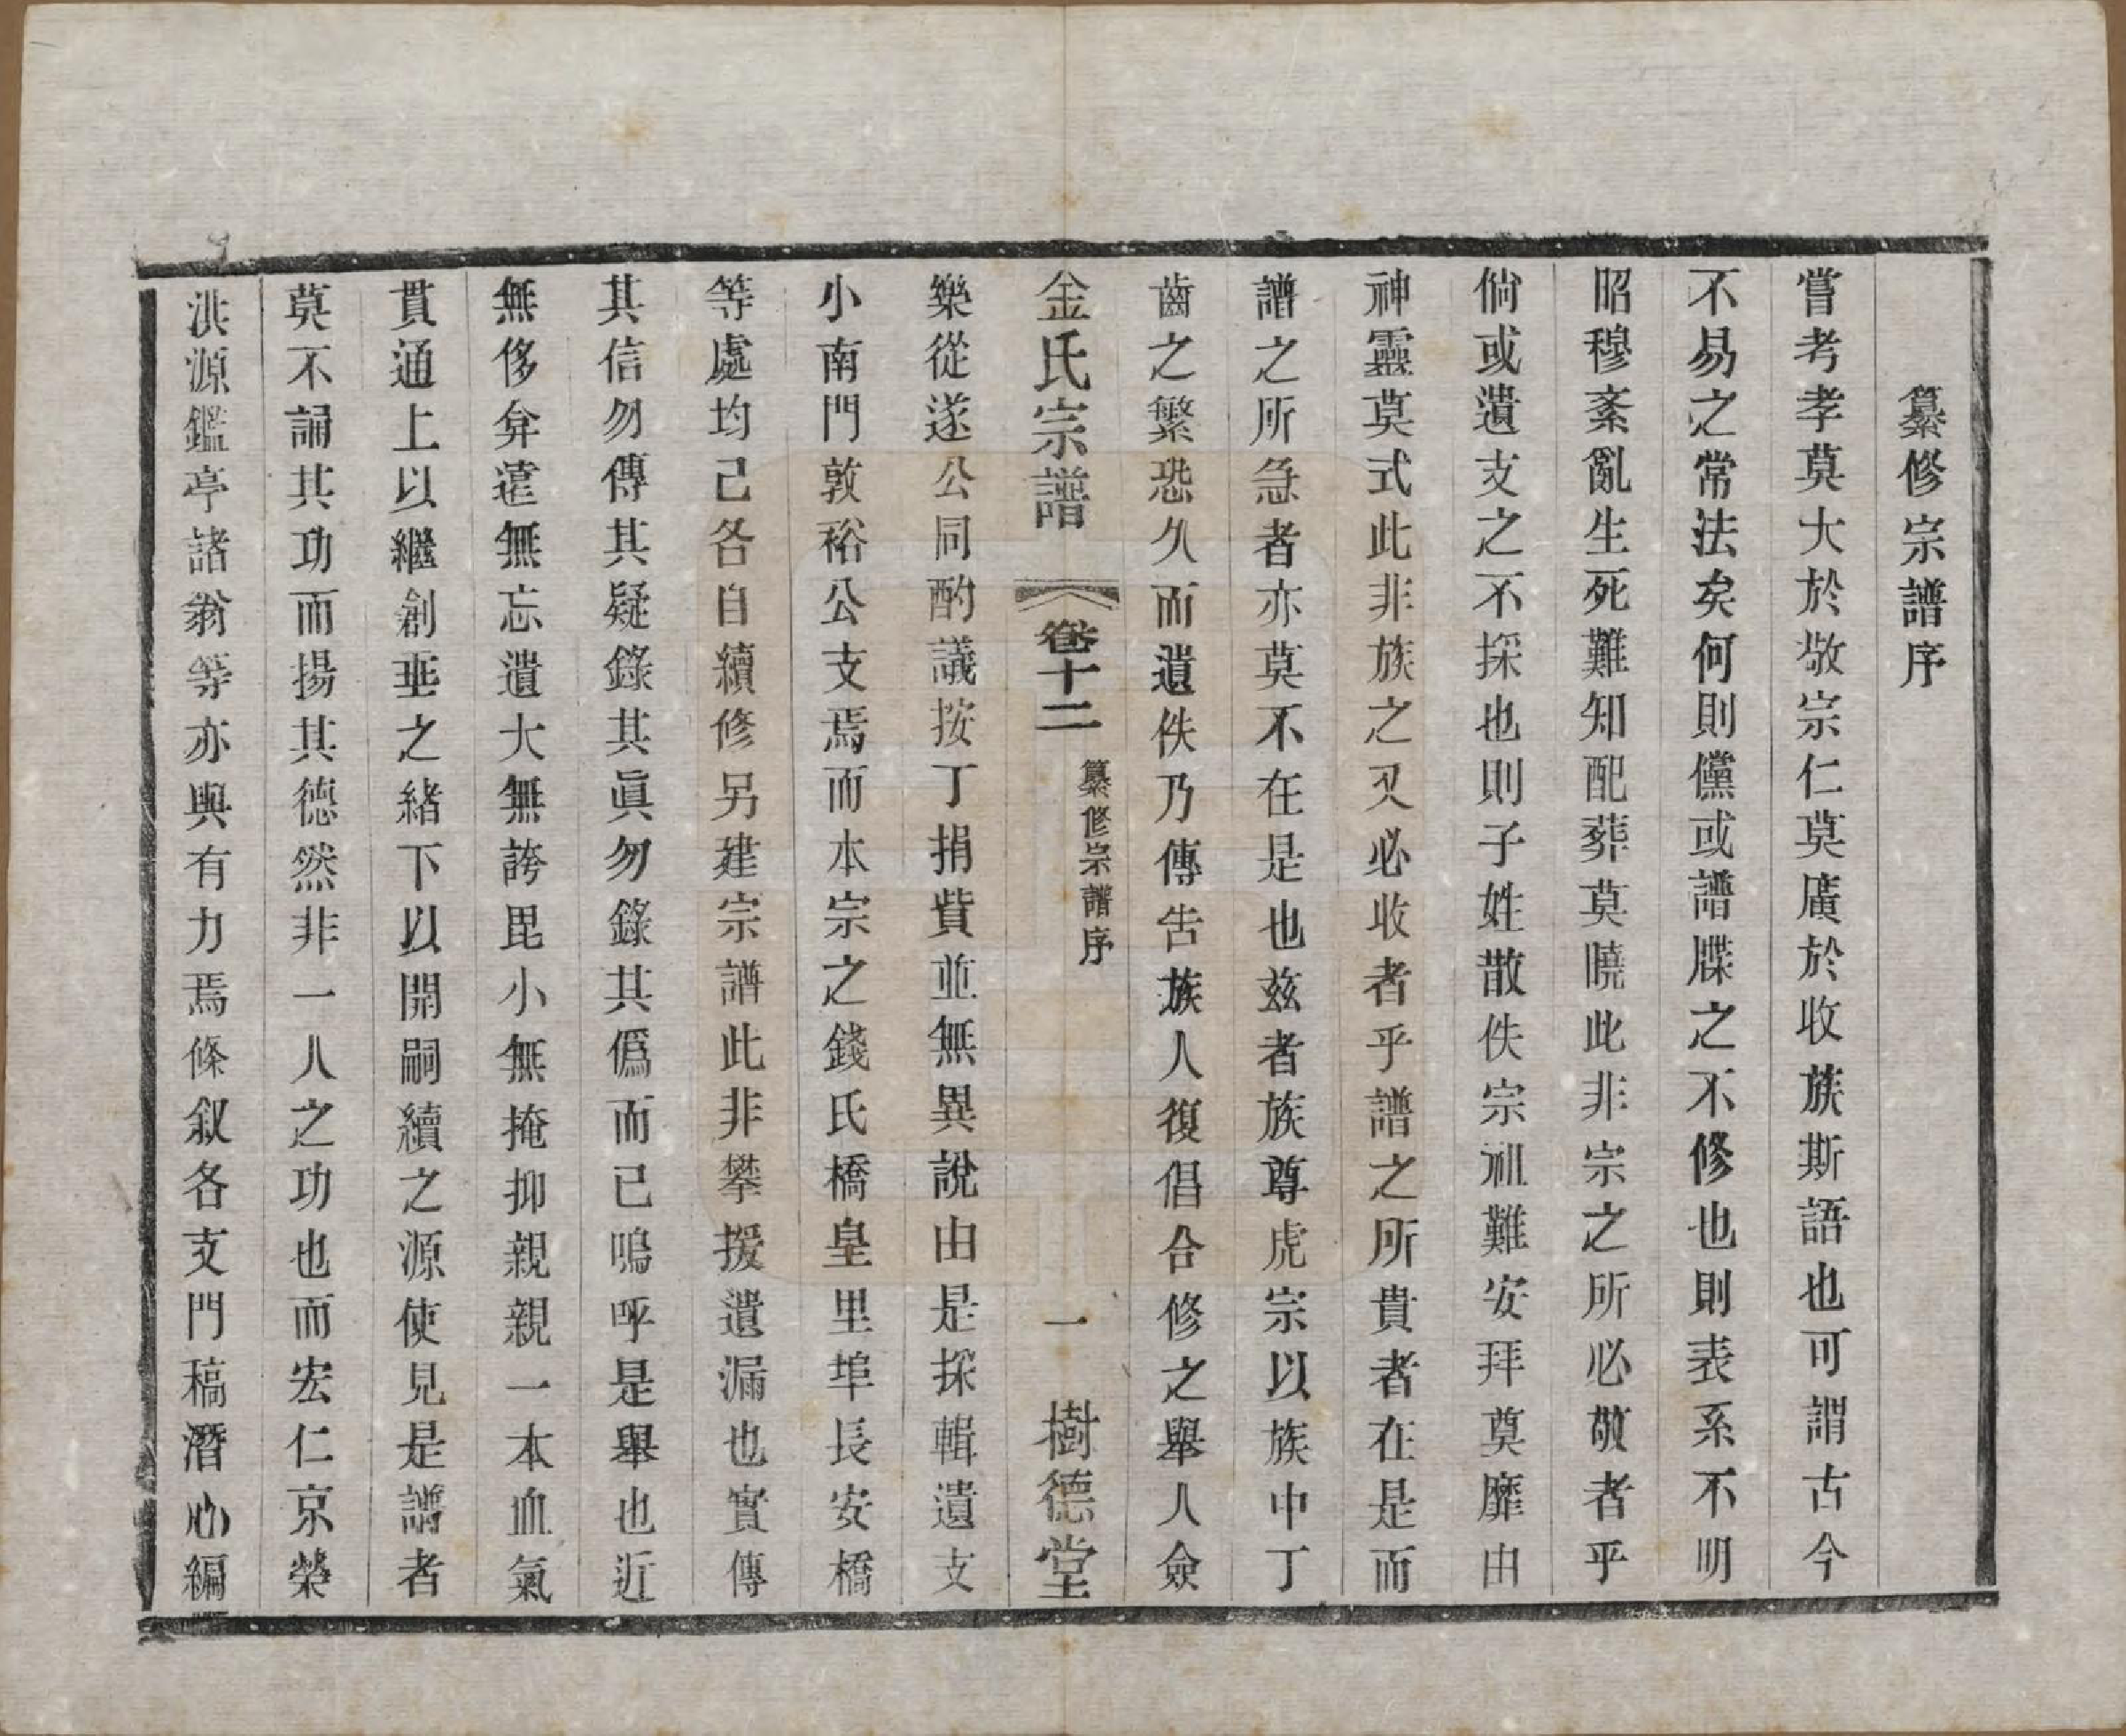 纂修宗譜序
嘗考孝莫大於敬宗仁莫廣於收族斯語也可謂古今
不易之常法矣何則儻或譜牒之不修也則表系不明
昭穆紊亂生死難知配葬莫曉此非宗之所必敬者乎
倘或遺支之不採也則子姓散佚宗祖難安拜奠靡由
神靈莫式此非族之又必收者乎譜之所貴者在是而
譜之所急者亦莫不在是也玆者族尊虎宗以族中丁
齒之繁恐久而遺佚乃傳告族人復倡合修之舉人僉
金氏宗譜 卷十二 纂修宗譜序 一 樹德堂
樂從遂公同酌議按丁捐貲並無異說由是採輯遺支
小南門敦裕公支焉而本宗之錢氏橋皇里埠長安橋
等處均己各自續修另建宗譜此非攀援遺漏也實傳
其信勿傳其疑錄其眞勿錄其僞而已嗚呼是舉也近
無侈弁遠無忘遺大無誇毘小無掩抑親親一本血氣
貫通上以繼創垂之緒下以開嗣續之源使見是譜者
莫不誦其功而揚其德然非一人之功也而宏仁京榮
洪源鑑亭諸翁等亦與有力焉條叙各支門稿潛心編